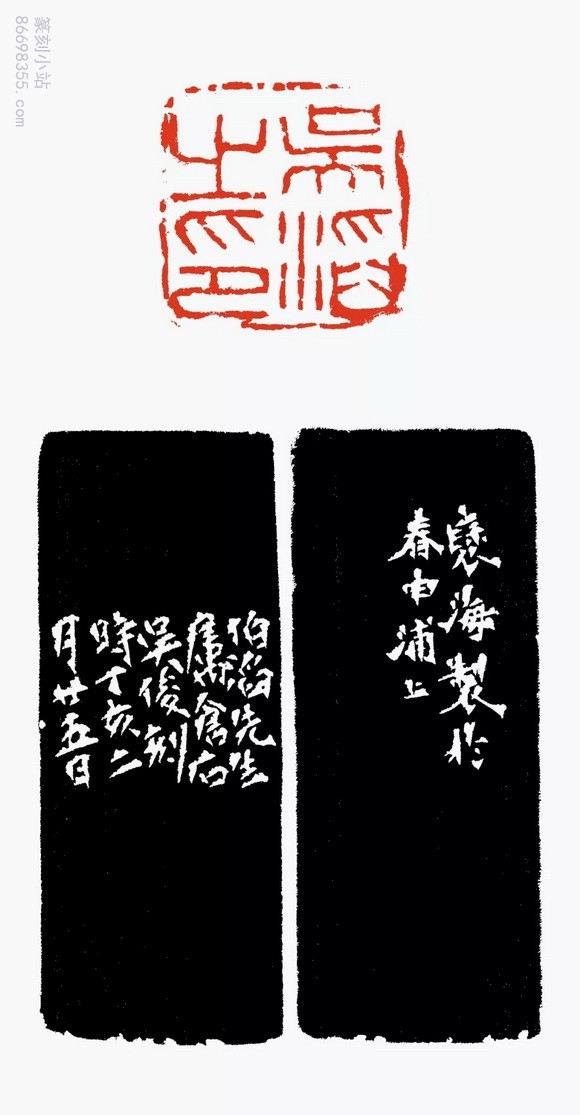 篆刻小站
86698355.com
吳滔
之印
海製於
春申浦上
伯滔先生
倉石
吳俊刻
時丁亥二
月廿五日